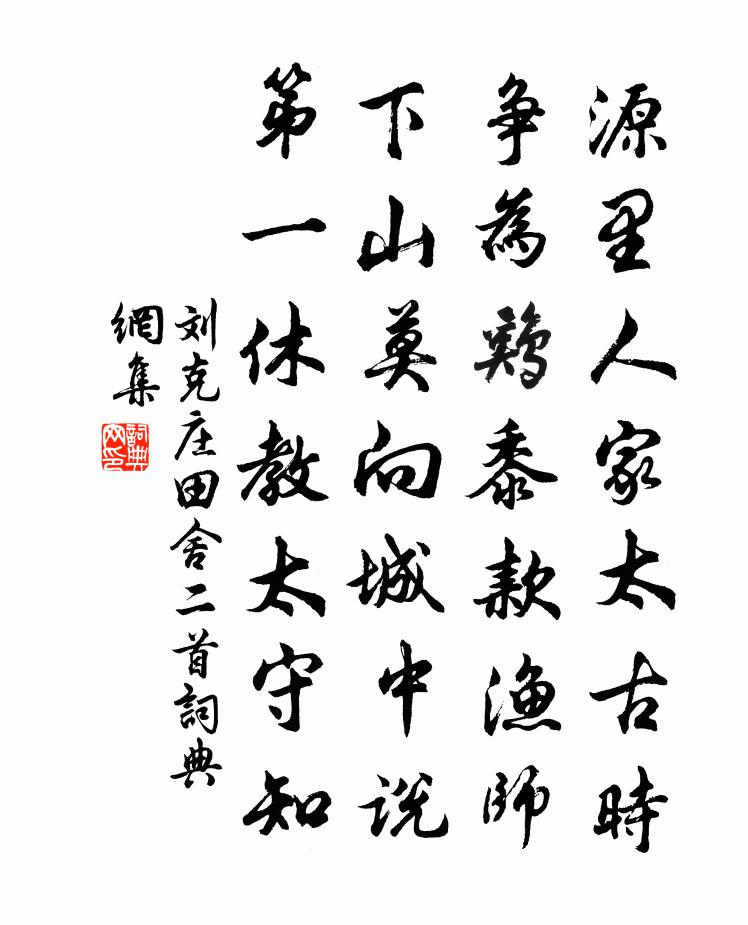 源里人家太古時
爭為鷄黍款漁師
下山莫向城中説
第一休教太守知
刘克庄田舍二首詞典
網集
詞典
网印